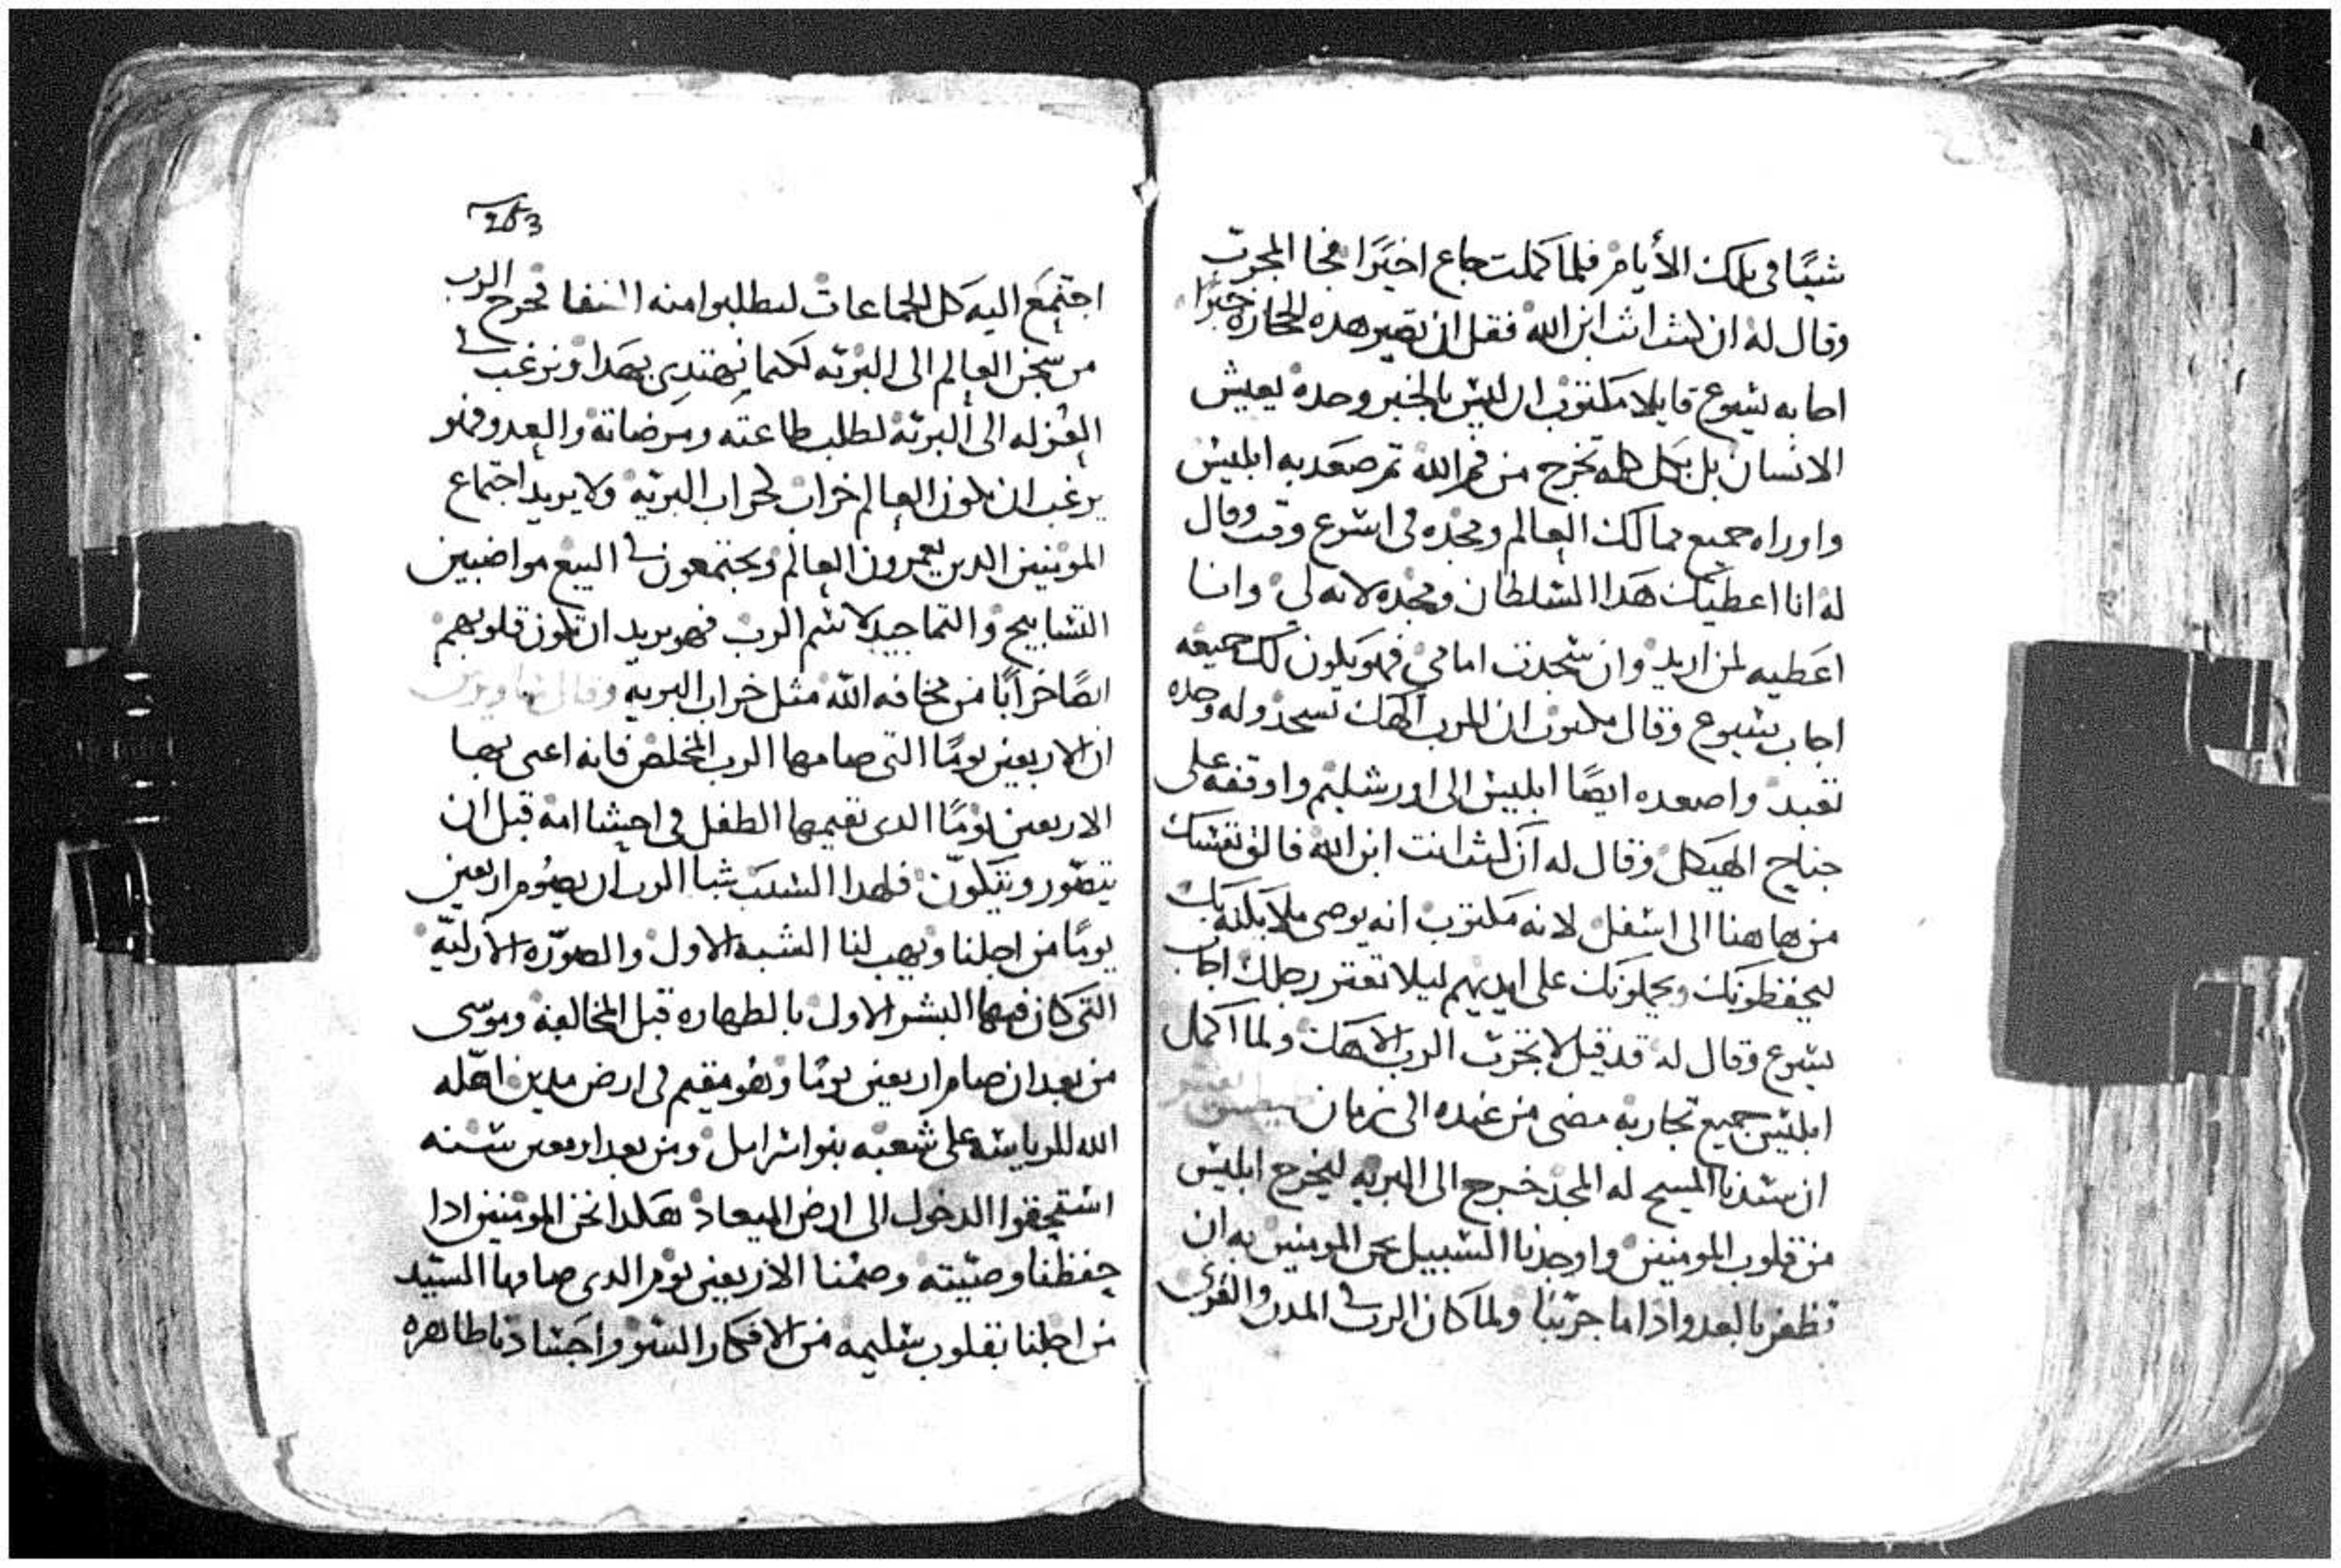 شيئًا في تلك الأيام فلما كملت جاع اخيرًا فجا المجرب
وقال له ان كنت انت ابن الله فقل ان تصير هده الحجاره خبزًا
اجابه يسوع قايلا مكتوب ان ليس بالخبز وحده يعيش
الانسان بل بكل كلمه تخرج من فم الله تم صعد به ابليس
واوراه جميع ممالك العالم ومجده في اسرع وقت وقال
له انا اعطيك هدا السلطان ومجده لانه لي وانا
اعطيه لمن اريد وان سجدت امامي فهو يكون لك جميعه
اجاب يسوع وقال مكتوب ان للرب الاهك تسجد وله وحده
تعبد واصعده ايضًا ابليس الى اورشليم واوقفه على
جناح الهيكل وقال له ان كنت انت ابن الله فالق نفسك
من هاهنا الى اسفل لانه مكتوب انه يوصي ملايكته بك
ليحفظونك ويحملونك على ايديهم ليلا تعتر رجلك اجاب
يسوع وقال له قد قيل لا تجرب الرب الاهك ولما اكمل
ابليس جميع تجاربه مضى من عنده الى زمان
ان سيدنا المسيح له المجد خرج الى البريه ليخرج ابليس
من قلوب المومنين واوجدنا السبيل نحن المومنين به ان
نظفر بالعدو ادا ما جربنا ولما كان الرب في المدن والقرى
253
اجتمع اليه كل الجماعات ليطلبوا منه الشفا فخرج الرب
من سجن العالم الى البريه لكيما نهتدي بهدا ونرغب في
العزله الى البريه لطلب طاعته ومرضاته والعدو فهو
يرغب ان يكون العالم خراب كخراب البريه ولا يريد اجتماع
المومنين الدين يعمرون العالم ويجتمعون في البيع مواضبين
التسابيح والتماجيد لاسم الرب فهو يريد ان تكون قلوبهم
ايضًا خرابًا من مخافه الله مثل خراب البريه وقال
ان الاربعين يومًا التي صامها الرب المخلص فانه اعنى بها
الاربعين يومًا الدي يقيمها الطفل في احشا امه قبل ان
يتصور ويتكون فلهدا السبب شا الرب ان يصوم اربعين
يومًا من اجلنا ويهب لنا الشبه الاول والصوره الازليه
التي كان فيها البشر الاول بالطهاره قبل المخالفه وموسى
من بعد ان صام اربعين يومًا وهو مقيم في ارض مدين اهله
الله للرياسه على شعبه بنو اسرايل ومن بعد اربعين سنه
استحقوا الدخول الى ارض الميعاد هكدا نحن المومنين ادا
حفظنا وصيته وصمنا الاربعين يوم الدي صامها السيد
من اجلنا بقلوب سليمه من الافكار السو واجسادنا طاهره